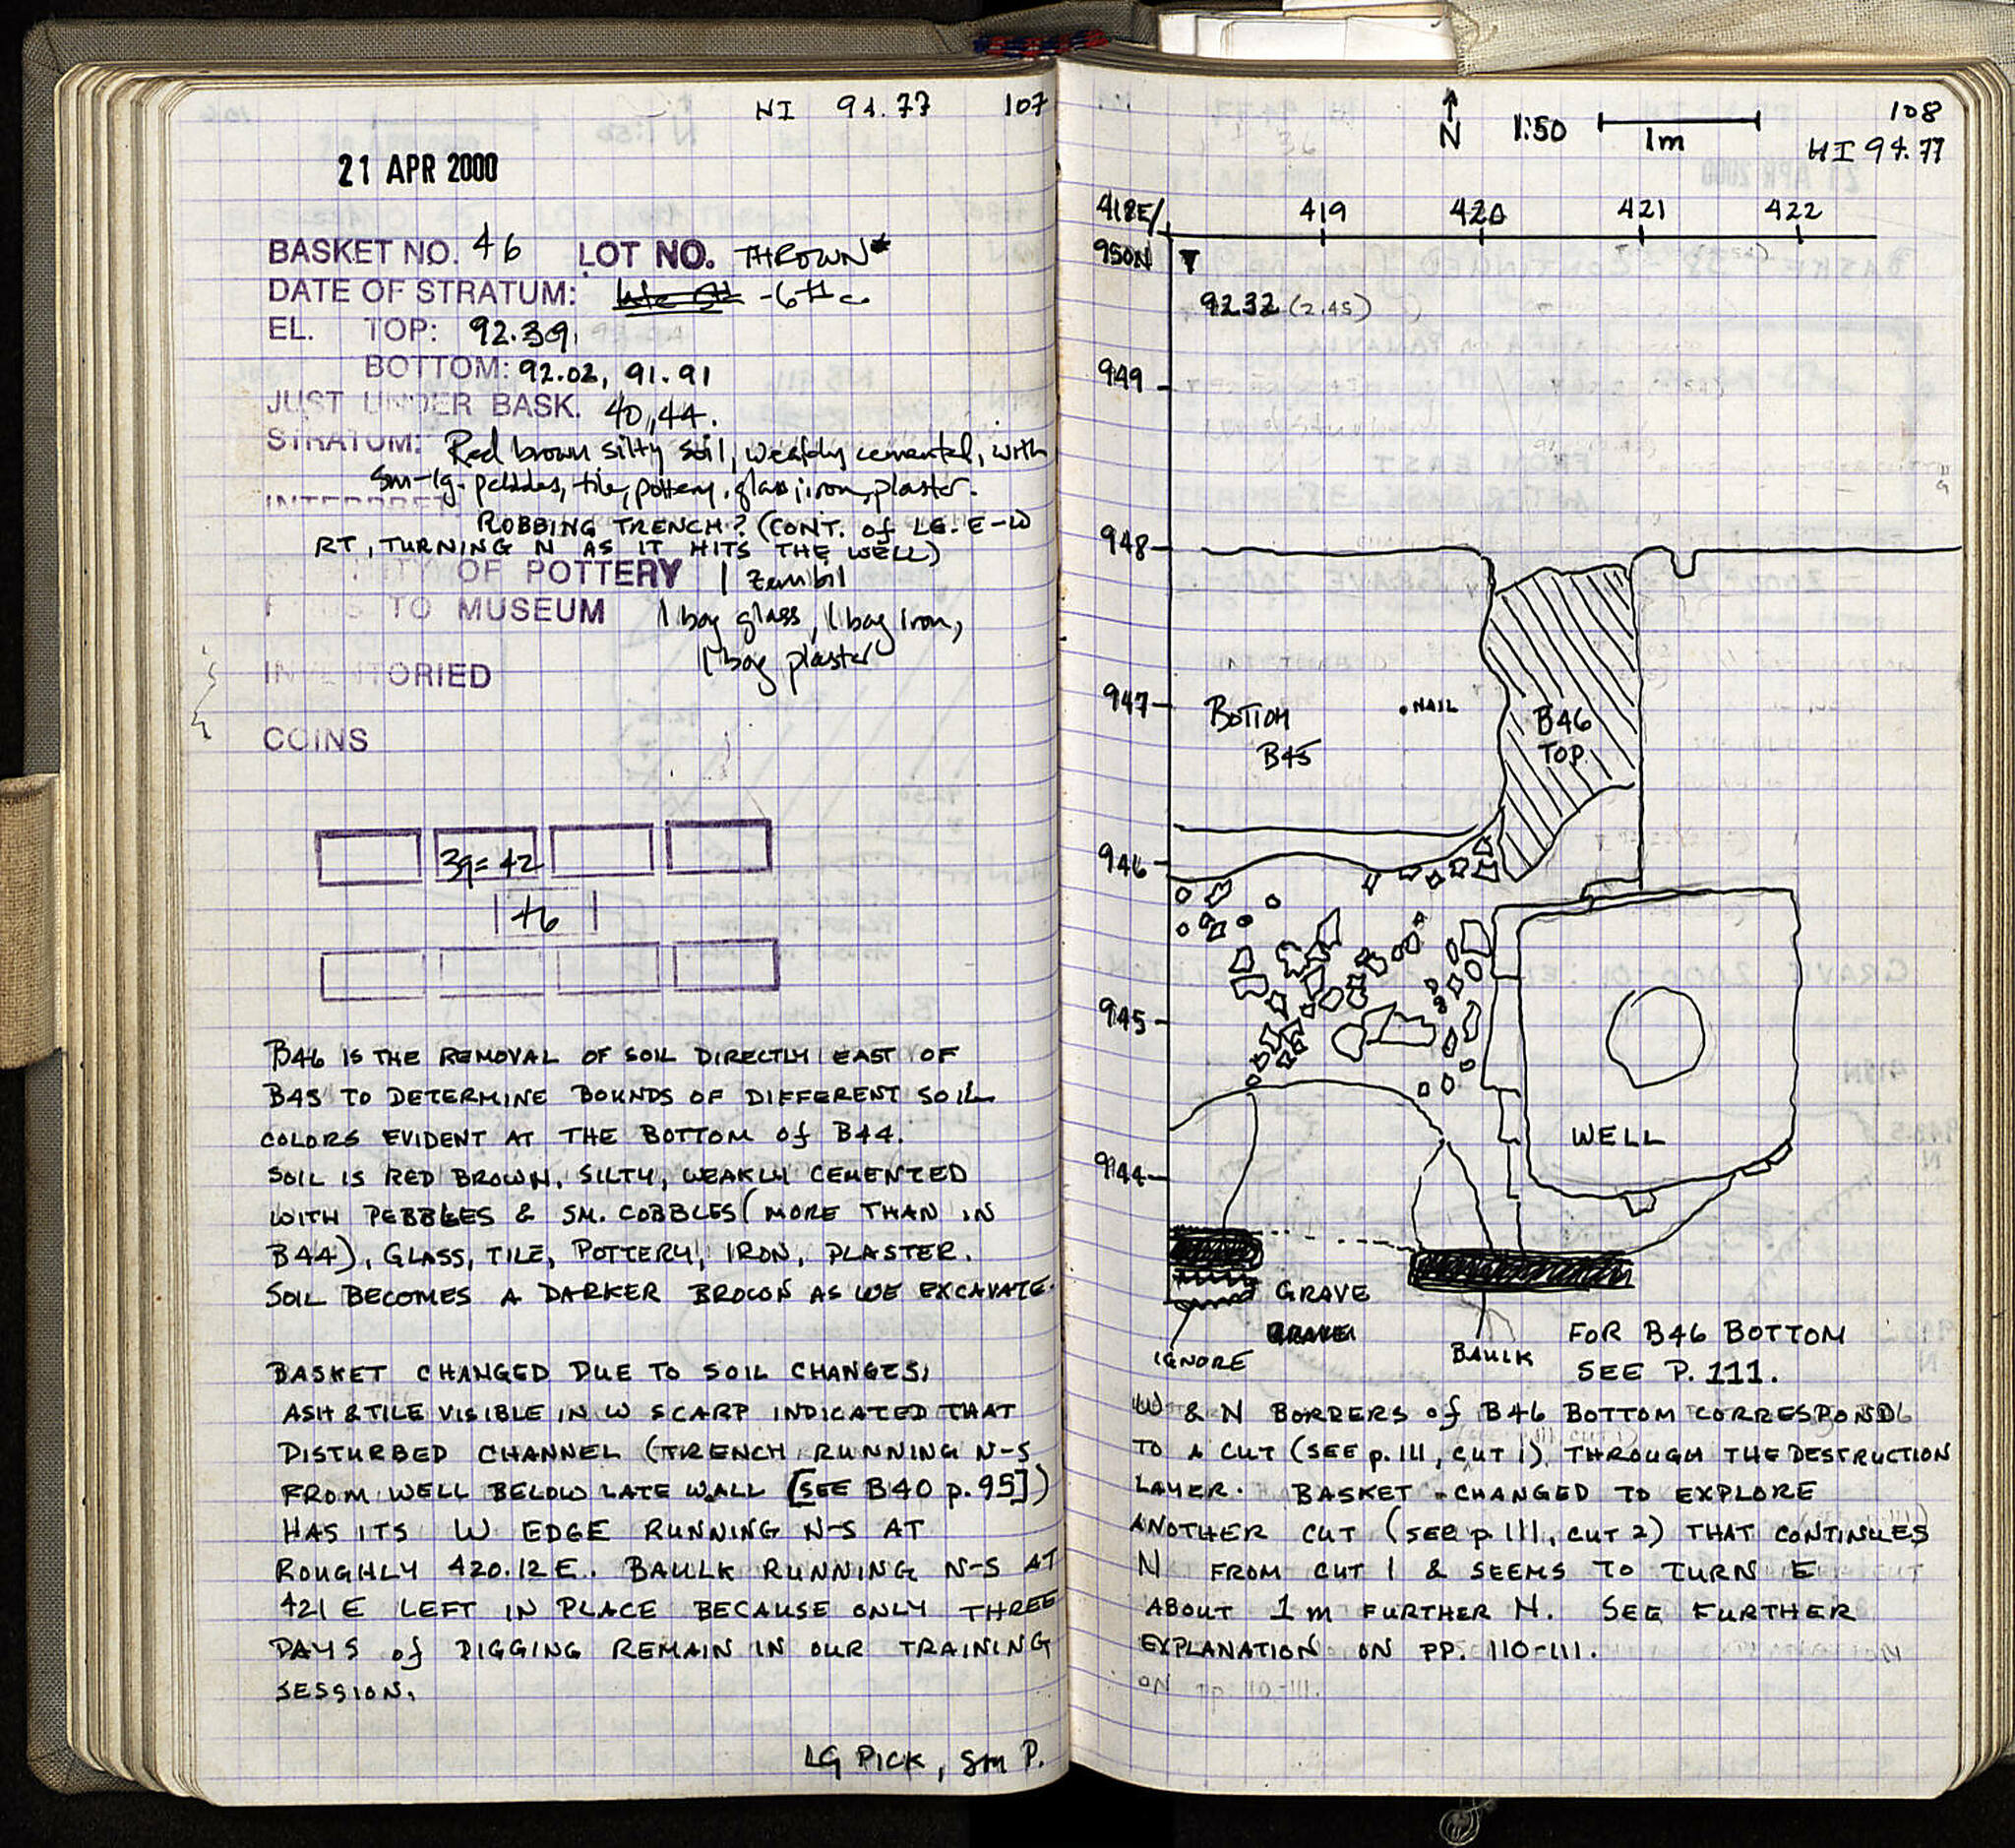 HI 94.77 107
21 APR 2000
BASKET NO. 46 LOT NO. THROWN*
DATE OF STRATUM: -6th c.
EL. TOP: 92.39.
BOTTOM: 92.02, 91.91
JUST UNDER BASK. 40, 44.
STRATUM: Red brown silty soil, weakly cemented, with
sm-lg. pebbles, tile, pottery, glass, iron, plaster.
INTERPRET
ROBBING TRENCH? (CONT. of LG. E-W
RT, TURNING N AS IT HITS THE WELL)
TY OF POTTERY 1 zembil
TO MUSEUM 1 bag glass, 1 bag iron,
1 bag plaster
INVENTORIED
COINS
39=42
46
B46 IS THE REMOVAL OF SOIL DIRECTLY EAST OF
B45 TO DETERMINE BOUNDS OF DIFFERENT SOIL
COLORS EVIDENT AT THE BOTTOM of B44.
SOIL IS RED BROWN, SILTY, WEAKLY CEMENTED
WITH PEBBLES & SM. COBBLES (MORE THAN IN
B44), GLASS, TILE, POTTERY, IRON, PLASTER.
SOIL BECOMES A DARKER BROWN AS WE EXCAVATE.
BASKET CHANGED DUE TO SOIL CHANGES;
ASH & TILE VISIBLE IN W SCARP INDICATED THAT
DISTURBED CHANNEL (TRENCH RUNNING N-S
FROM WELL BELOW LATE WALL [SEE B40 p. 95])
HAS ITS W EDGE RUNNING N-S AT
ROUGHLY 420.12 E. BAULK RUNNING N-S AT
421 E LEFT IN PLACE BECAUSE ONLY THREE
DAYS of DIGGING REMAIN IN OUR TRAINING
SESSION.
LG PICK, SM P.
108
N 1:50 1m
HI 94.77
418E/ 419 420 421 422
950N
92.32 (2.45)
949
948
947
BOTTOM
B45
NAIL
B46
TOP
946
945
WELL
944
GRAVE
GRAVE
IGNORE
BAULK
FOR B46 BOTTOM
SEE P. 111.
W & N BORDERS of B46 BOTTOM CORRESPOND
TO A CUT (SEE p. 111, CUT 1) THROUGH THE DESTRUCTION
LAYER. BASKET CHANGED TO EXPLORE
ANOTHER CUT (SEE p 111, CUT 2) THAT CONTINUES
N FROM CUT 1 & SEEMS TO TURN E
ABOUT 1m FURTHER N. SEE FURTHER
EXPLANATION ON PP. 110-111.
ON pp. 110-111.